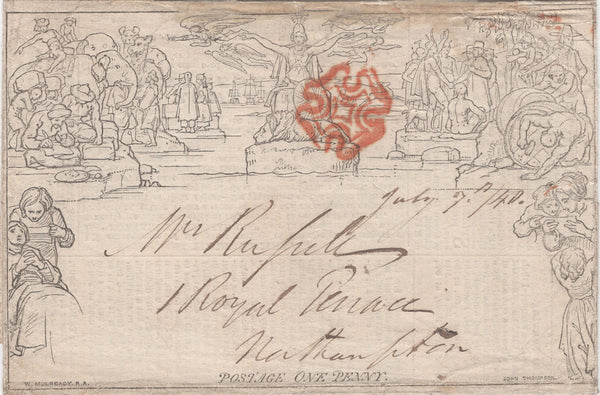 July 9th /40.
Mrs Russell
1 Royal Terrace
Northampton
POSTAGE ONE PENNY.
W. MULREADY. R.A.
JOHN THOMPSON.